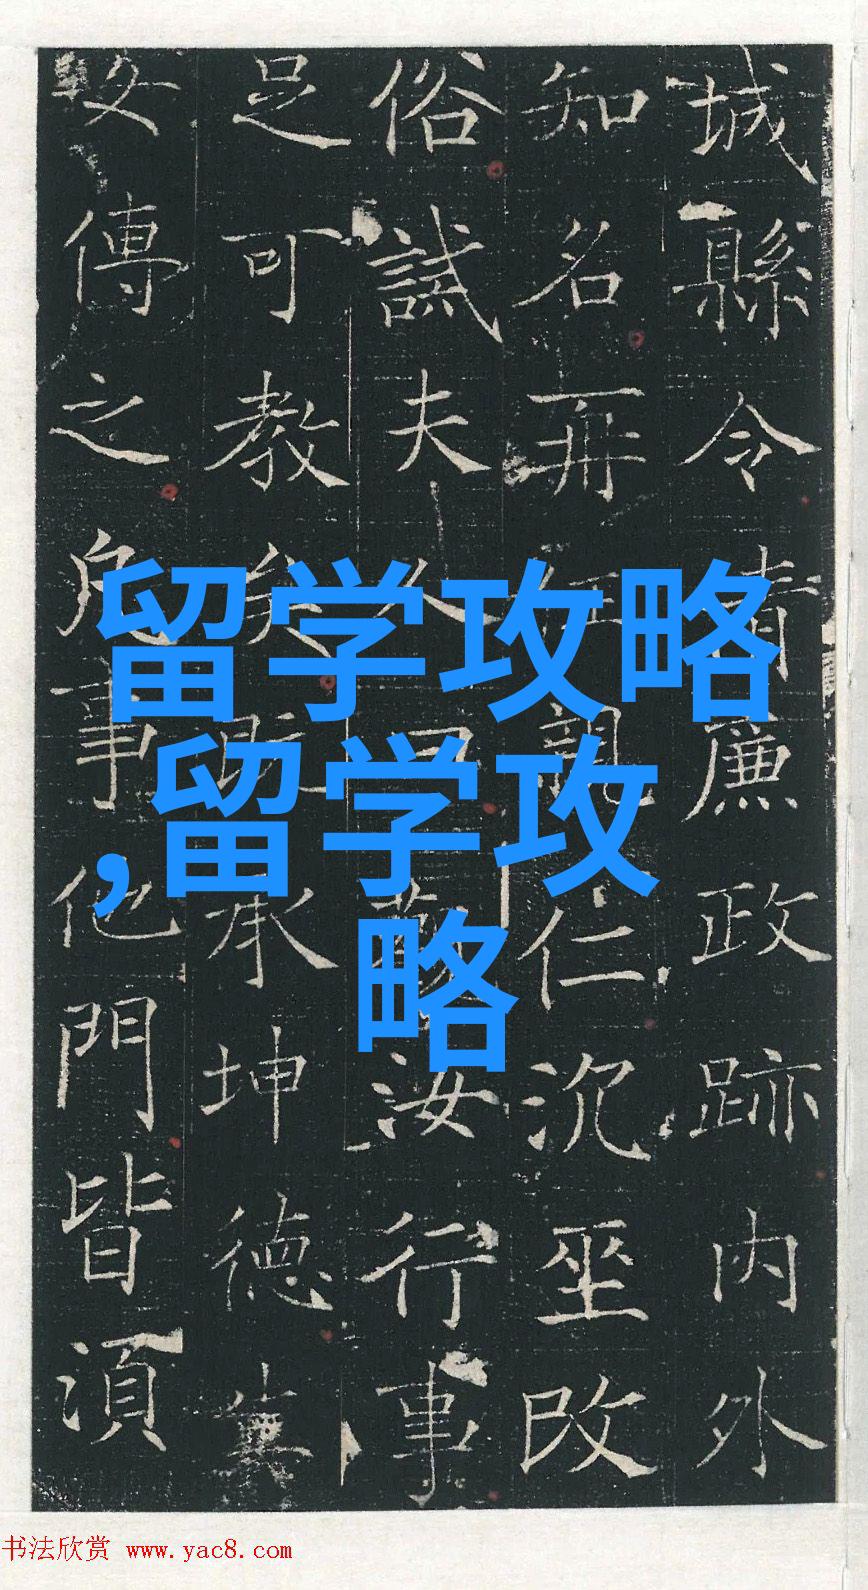 城縣令清廉政跡内外
知名再親仁沉坐改
俗夫人曰汝行事
足可教矣承坤德
傳之凡事他門皆須
留学攻略
,留学攻
略
书法欣赏 www.yac8.com